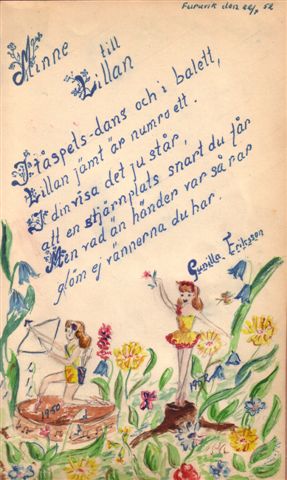 Furuvik den 52
Minne till
Lillan
I tåspets-dans och i balett,
Lillan jämt är numro ett.
I din visa det ju står,
att en stjärnplats snart du får
Men vad än händer var så rar
glöm ej vännerna du har.
Gunilla Eriksson
1952
1950